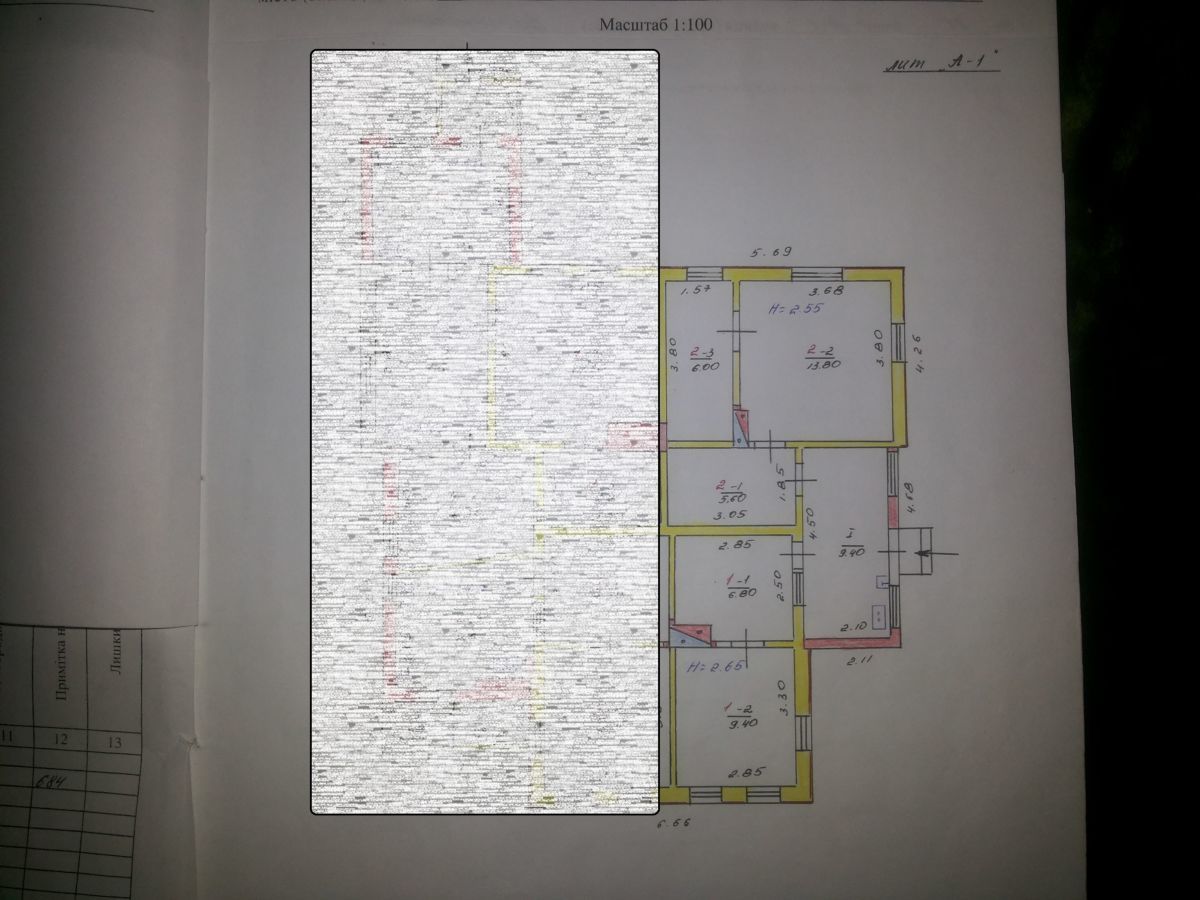 Масштаб 1:100
лит „А-1"
5.69
1.57
3.68
Н=2.55
3.80
2-3
6.00
2-2
13.80
3.80
4.26
2-1
5.60
3.05
1.85
4.50
4.68
I
9.40
2.85
1-1
6.80
2.50
2.10
2.11
Н=2.65
1-2
9.40
3.30
2.85
6.66
Примітка
Лишки
11
12
13
684